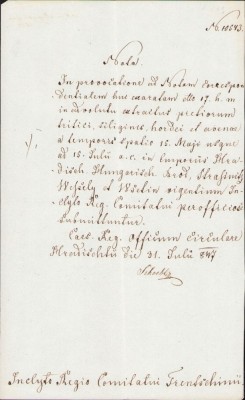 No. 10543.
Nota.
In provocatione ad Notam Correspon
dentialem huc exaratam dtto 17. h. m.
in advoluto extractus pretiorum
tritici, siliginis, hordei et avenae
a temporis spatio 15. Maji usque
ad 15. Julii a. c. in emporiis Hra-
disch, Hungarisch-Brod, Strassnitz,
Wessely et Wsetin vigentium In-
clyto Reg. Comitatui perofficiose
submittuntur.
Caes. Reg. Officium Circulare
Hradischtii die 31. Julii 847
Inclyto Regio Comitatui Trentsiniensi